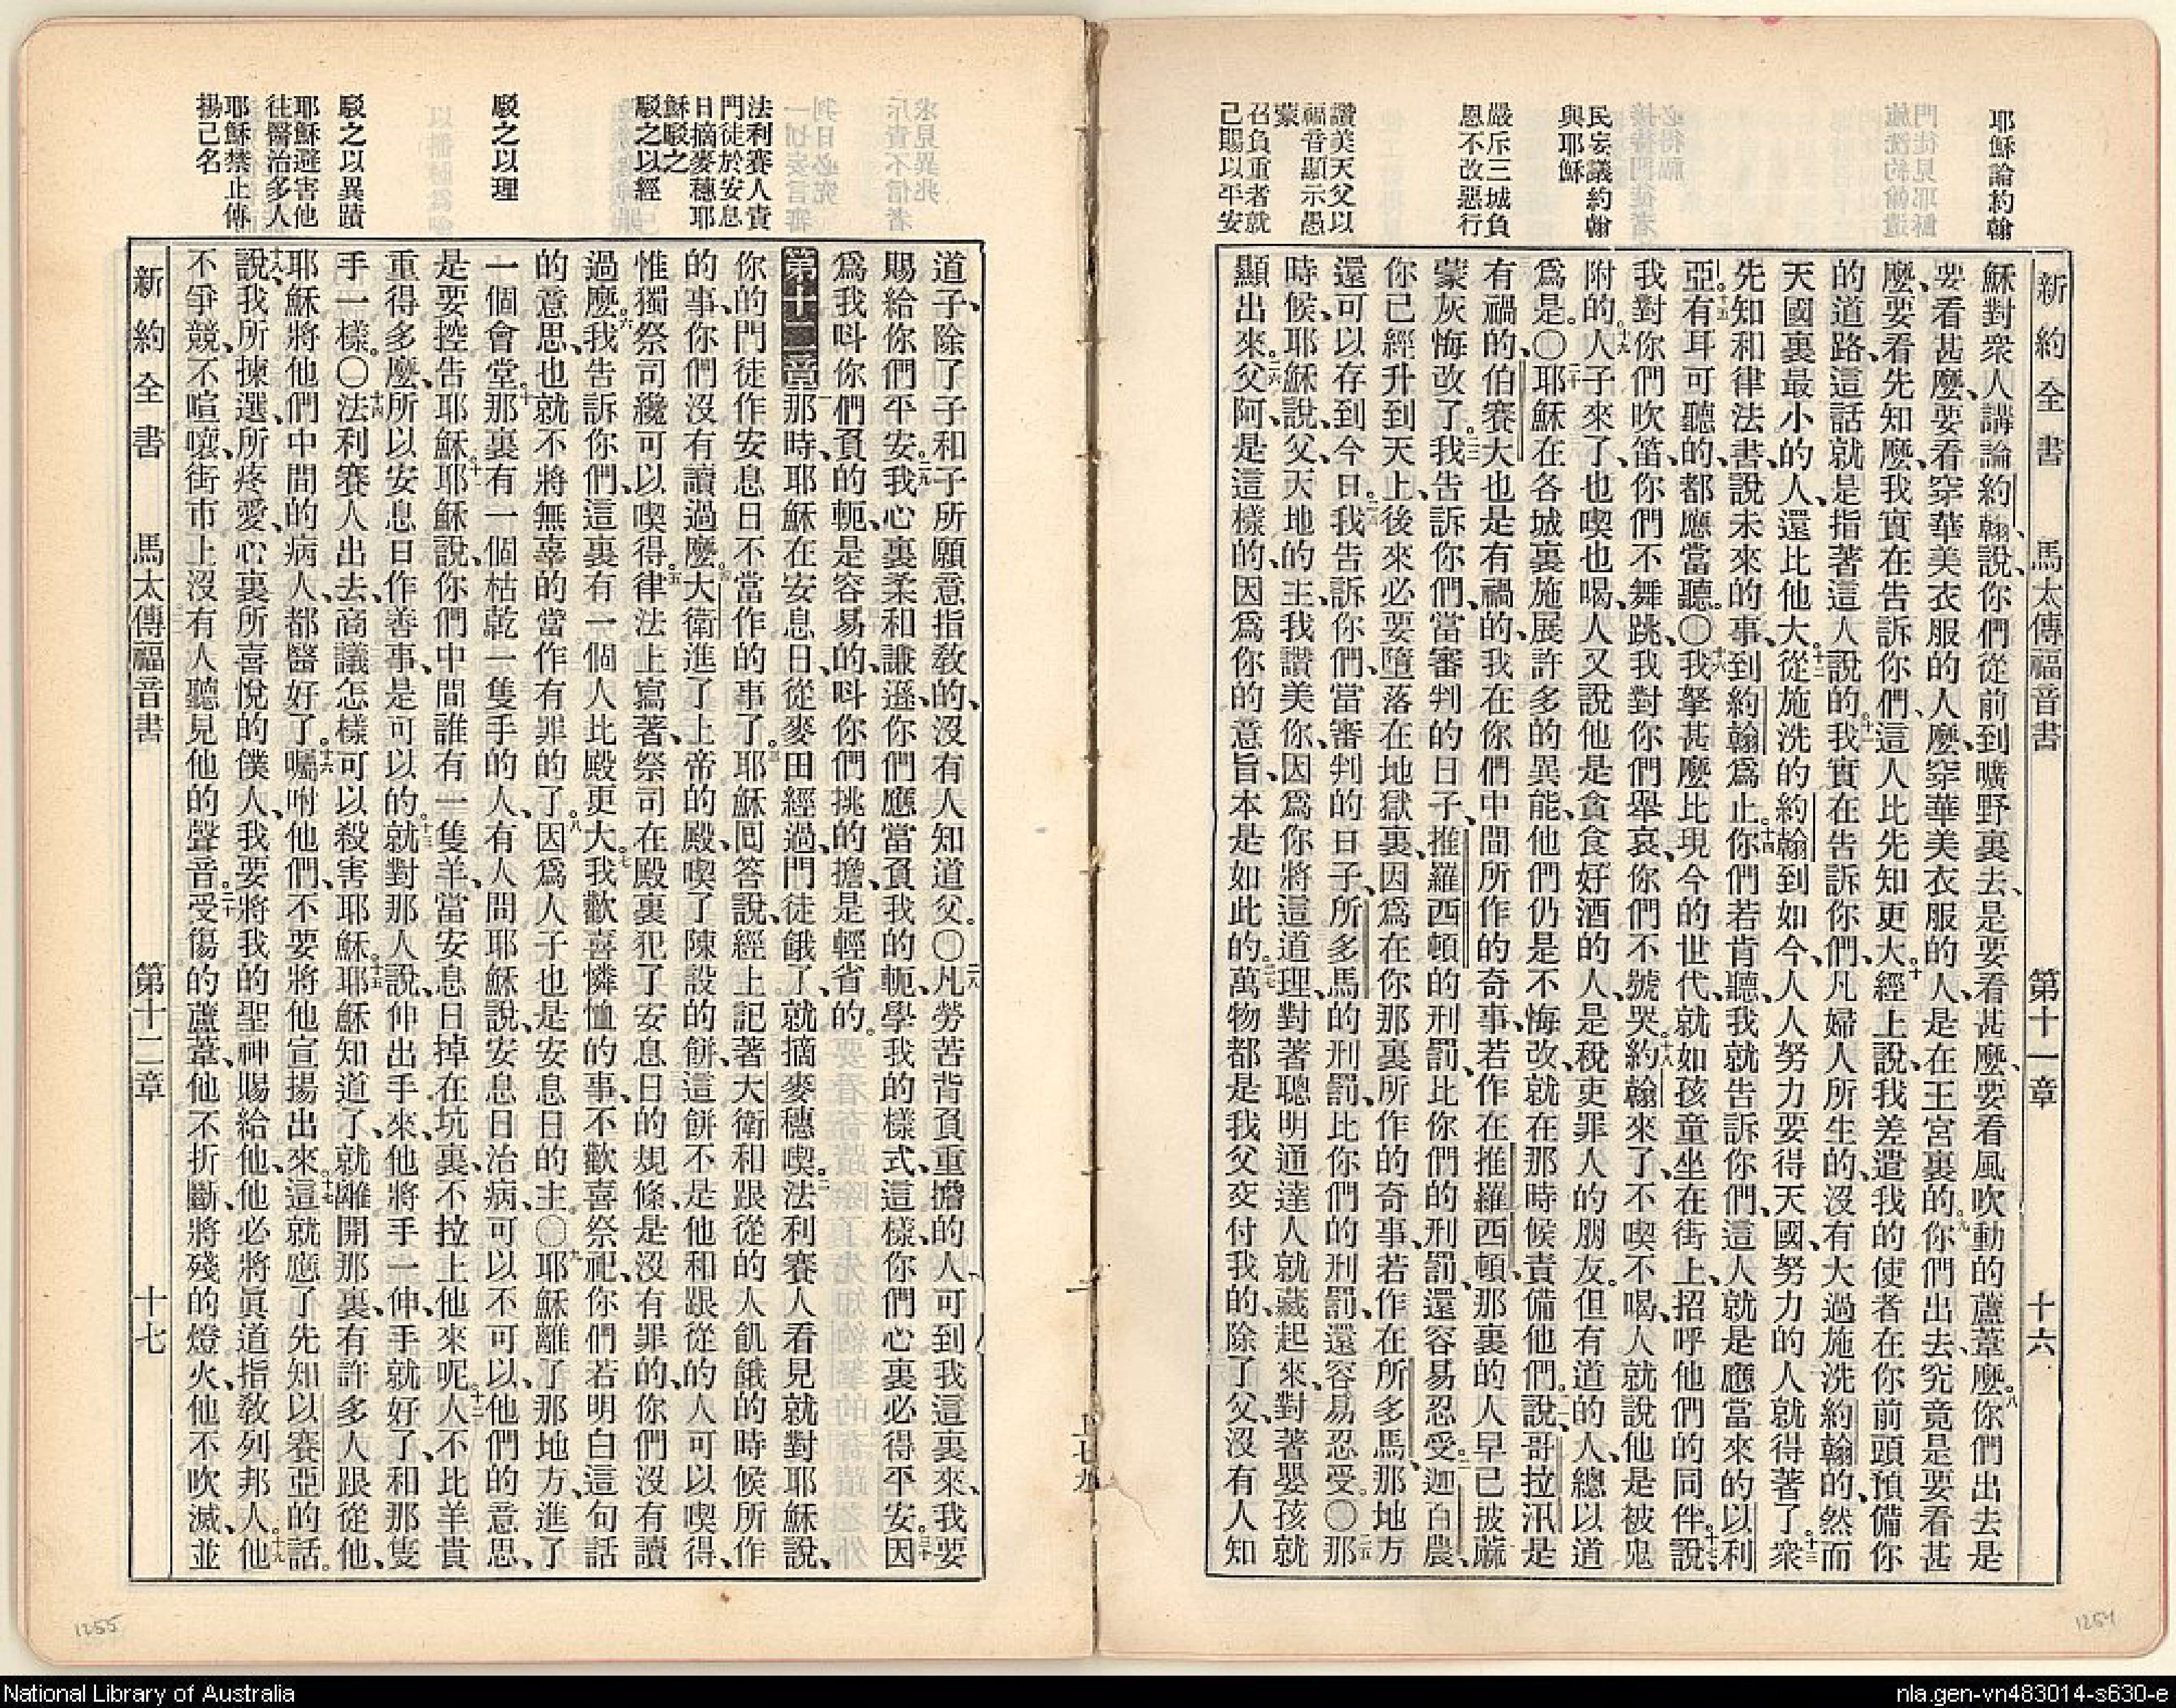 耶穌論約翰
民妄議約翰
與耶穌
嚴斥三城負
恩不改惡行
讚美天父以
福音顯示愚
蒙
召負重者就
己賜以平安
新約全書 馬太傳福音書 第十一章 十六
穌對衆人講論約翰說、你們從前到曠野裏去、是要看甚麼、要看風吹動的蘆葦麼。八你們出去是
要看甚麼、要看穿華美衣服的人麼、穿華美衣服的人、是在王宮裏的。九你們出去、究竟是要看甚
麼、要看先知麼、我實在告訴你們、這人比先知更大。十經上說、我差遣我的使者在你前頭、預備你
的道路、這話就是指著這人說的。十一我實在告訴你們、凡婦人所生的、沒有大過施洗約翰的、然而
天國裏最小的人、還比他大。十二從施洗的約翰到如今、人人努力要得天國、努力的人就得著了。十三衆
先知和律法書、說未來的事、到約翰爲止。十四你們若肯聽、我就告訴你們、這人就是應當來的以利
亞。十五有耳可聽的、都應當聽。〇十六我拏甚麼比現今的世代、就如孩童坐在街上、招呼他們的同伴說、十七
我對你們吹笛、你們不舞跳、我對你們舉哀、你們不號哭。十八約翰來了、不喫不喝、人就說他是被鬼
附的。十九人子來了、也喫也喝、人又說他是貪食好酒的人、是稅吏罪人的朋友。但有道的人、總以道
爲是。〇二十耶穌在各城裏施展許多的異能、他們仍是不悔改、就在那時候責備他們。說、哥拉汛是
有禍的、伯賽大也是有禍的、我在你們中間所作的奇事、若作在推羅西頓、那裏的人早已披蔴
蒙灰悔改了。二二我告訴你們、當審判的日子、推羅西頓的刑罰、比你們的刑罰、還容易忍受。二三迦百農、
你已經升到天上、後來必要墮落在地獄裏、因爲在你那裏所作的奇事、若作在所多馬、那地方
還可以存到今日。二四我告訴你們、當審判的日子、所多馬的刑罰、比你們的刑罰、還容易忍受。〇二五那
時候、耶穌說、父、天地的主、我讚美你、因爲你將這道理、對著聰明通達人就藏起來、對著嬰孩就
顯出來。二六父阿、是這樣的、因爲你的意旨、本是如此的。二七萬物都是我父交付我的、除了父、沒有人知
法利賽人責
門徒於安息
日摘麥穗耶
穌駁之
駁之以經
駁之以理
駁之以異蹟
耶穌避害他
往醫治多人
耶穌禁止傳
揚己名
道子、除了子和子所願意指敎的、沒有人知道父。〇二八凡勞苦背負重擔的人、可到我這裏來、我要
賜給你們平安。二九我心裏柔和謙遜、你們應當負我的軛、學我的樣式、這樣、你們心裏必得平安。三十因
爲我呌你們負的軛、是容易的、呌你們挑的擔、是輕省的。
第十二章 一那時、耶穌在安息日、從麥田經過、門徒餓了、就摘麥穗喫。二法利賽人看見、就對耶穌說、
你的門徒作安息日不當作的事了。三耶穌回答說、經上記著大衛和跟從的人飢餓的時候所作
的事、你們沒有讀過麼。四大衛進了上帝的殿、喫了陳設的餅、這餅不是他和跟從的人可以喫得、
惟獨祭司纔可以喫得。五律法上寫著、祭司在殿裏犯了安息日的規條、是沒有罪的、你們沒有讀
過麼。六我告訴你們、這裏有一個人比殿更大。七我歡喜憐恤的事、不歡喜祭祀、你們若明白這句話
的意思、也就不將無辜的當作有罪的了。八因爲人子也是安息日的主。〇九耶穌離了那地方、進了
一個會堂。十那裏有一個枯乾一隻手的人、有人問耶穌說、安息日治病、可以不可以、他們的意思、
是要控告耶穌。十一耶穌說、你們中間誰有一隻羊、當安息日掉在坑裏、不拉上他來呢。十二人不比羊貴
重得多麼、所以安息日作善事、是可以的。十三就對那人說、伸出手來、他將手一伸、手就好了、和那隻
手一樣。〇十四法利賽人出去、商議怎樣可以殺害耶穌。十五耶穌知道了、就離開那裏、有許多人跟從他、
耶穌將他們中間的病人、都醫好了。十六囑咐他們、不要將他宣揚出來。十七這就應了先知以賽亞的話。
十八說、我所揀選、所疼愛、心裏所喜悅的僕人、我要將我的聖神賜給他、他必將眞道指敎列邦人。十九他
不爭競、不喧嚷、街市上沒有人聽見他的聲音。二十受傷的蘆葦、他不折斷、將殘的燈火、他不吹滅、並
新約全書 馬太傳福音書 第十二章 十七
1255
1254
National Library of Australia
nla.gen-vn483014-s630-e